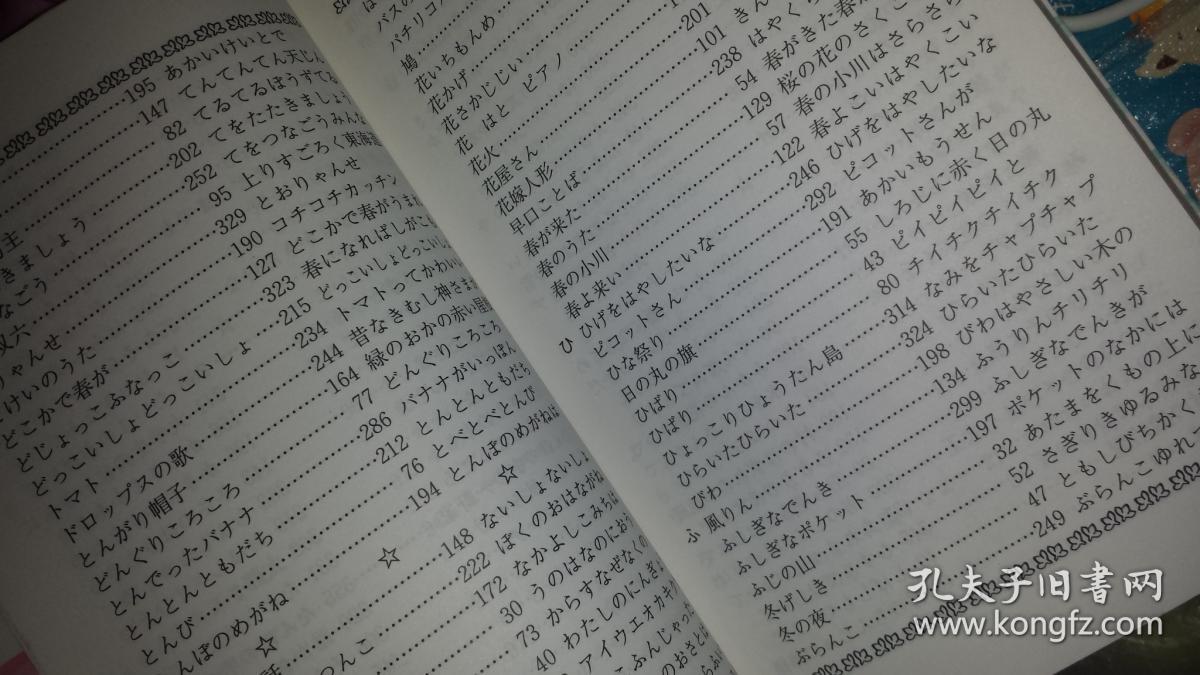 195 あかいけいとで
147 てんてんてん天じん
主 82 てるてるぼうずてる
きましょう 202 てをたたきましょう
なごう 252 てをつなごうみんな
双六 95 上りすごろく東海道
りゃんせ 329 とおりゃんせ
けいのうた 190 コチコチカッチン
どこかで春が 127 どこかで春がうまれ
どじょっこふなっこ 323 春になればしがこ
どっこいしょどっこいしょ 215 どっこいしょどっこいし
トマト 234 トマトってかわいい
ドロップスの歌 244 昔なきむし神さまが
とんがり帽子 164 緑のおかの赤い屋根
どんぐりころころ 77 どんぐりころころ
とんでったバナナ 286 バナナがいっぽん
とんとんともだち 212 とんとんともだち
とんび 76 とべとべとんび
んぼのめがね 194 とんぼのめがねは
☆ ☆ ☆
148 ないしょないしょ
っこ 222 ぼくのおはながな
172 なかよしこみち
30 うのはなのにおう
73 からすなぜなくの
40 わたしのにんぎ
アイウエオカキ
こふんじゃった
バスの
バチリコ
鳩
花いちもんめ
花かげ
花さかじじい
花
はと ピアノ
花火
花屋さん 201
花嫁人形 101 きん
早口ことば 238 はやくち
春が来た 54 春がきた春が
春のうた 129 桜の花のさくこ
春の小川 57 春の小川はさらさら
春よ来い 122 春よこいはやくこい
ひ ひげをはやしたいな 246 ひげをはやしたいな
ピコットさん 292 ピコットさんが
ひな祭り 191 あかいもうせん
日の丸の旗 55 しろじに赤く日の丸
ひばり 43 ピイピイピイと
ひばり 80 チイチクチイチク
ひょっこりひょうたん島 314 なみをチャプチャプ
ひらいたひらいた 324 ひらいたひらいた
びわ 198 びわはやさしい木の
ふ 風りん 134 ふうりんチリチリ
ふしぎなでんき 299 ふしぎなでんきが
ふしぎなポケット 197 ポケットのなかには
ふじの山 32 あたまをくもの上に
冬げしき 52 さぎりきゆるみな
冬の夜 47 ともしびちかく
ぶらんこ 249 ぶらんこゆれ
孔夫子旧书网
www.kongfz.com